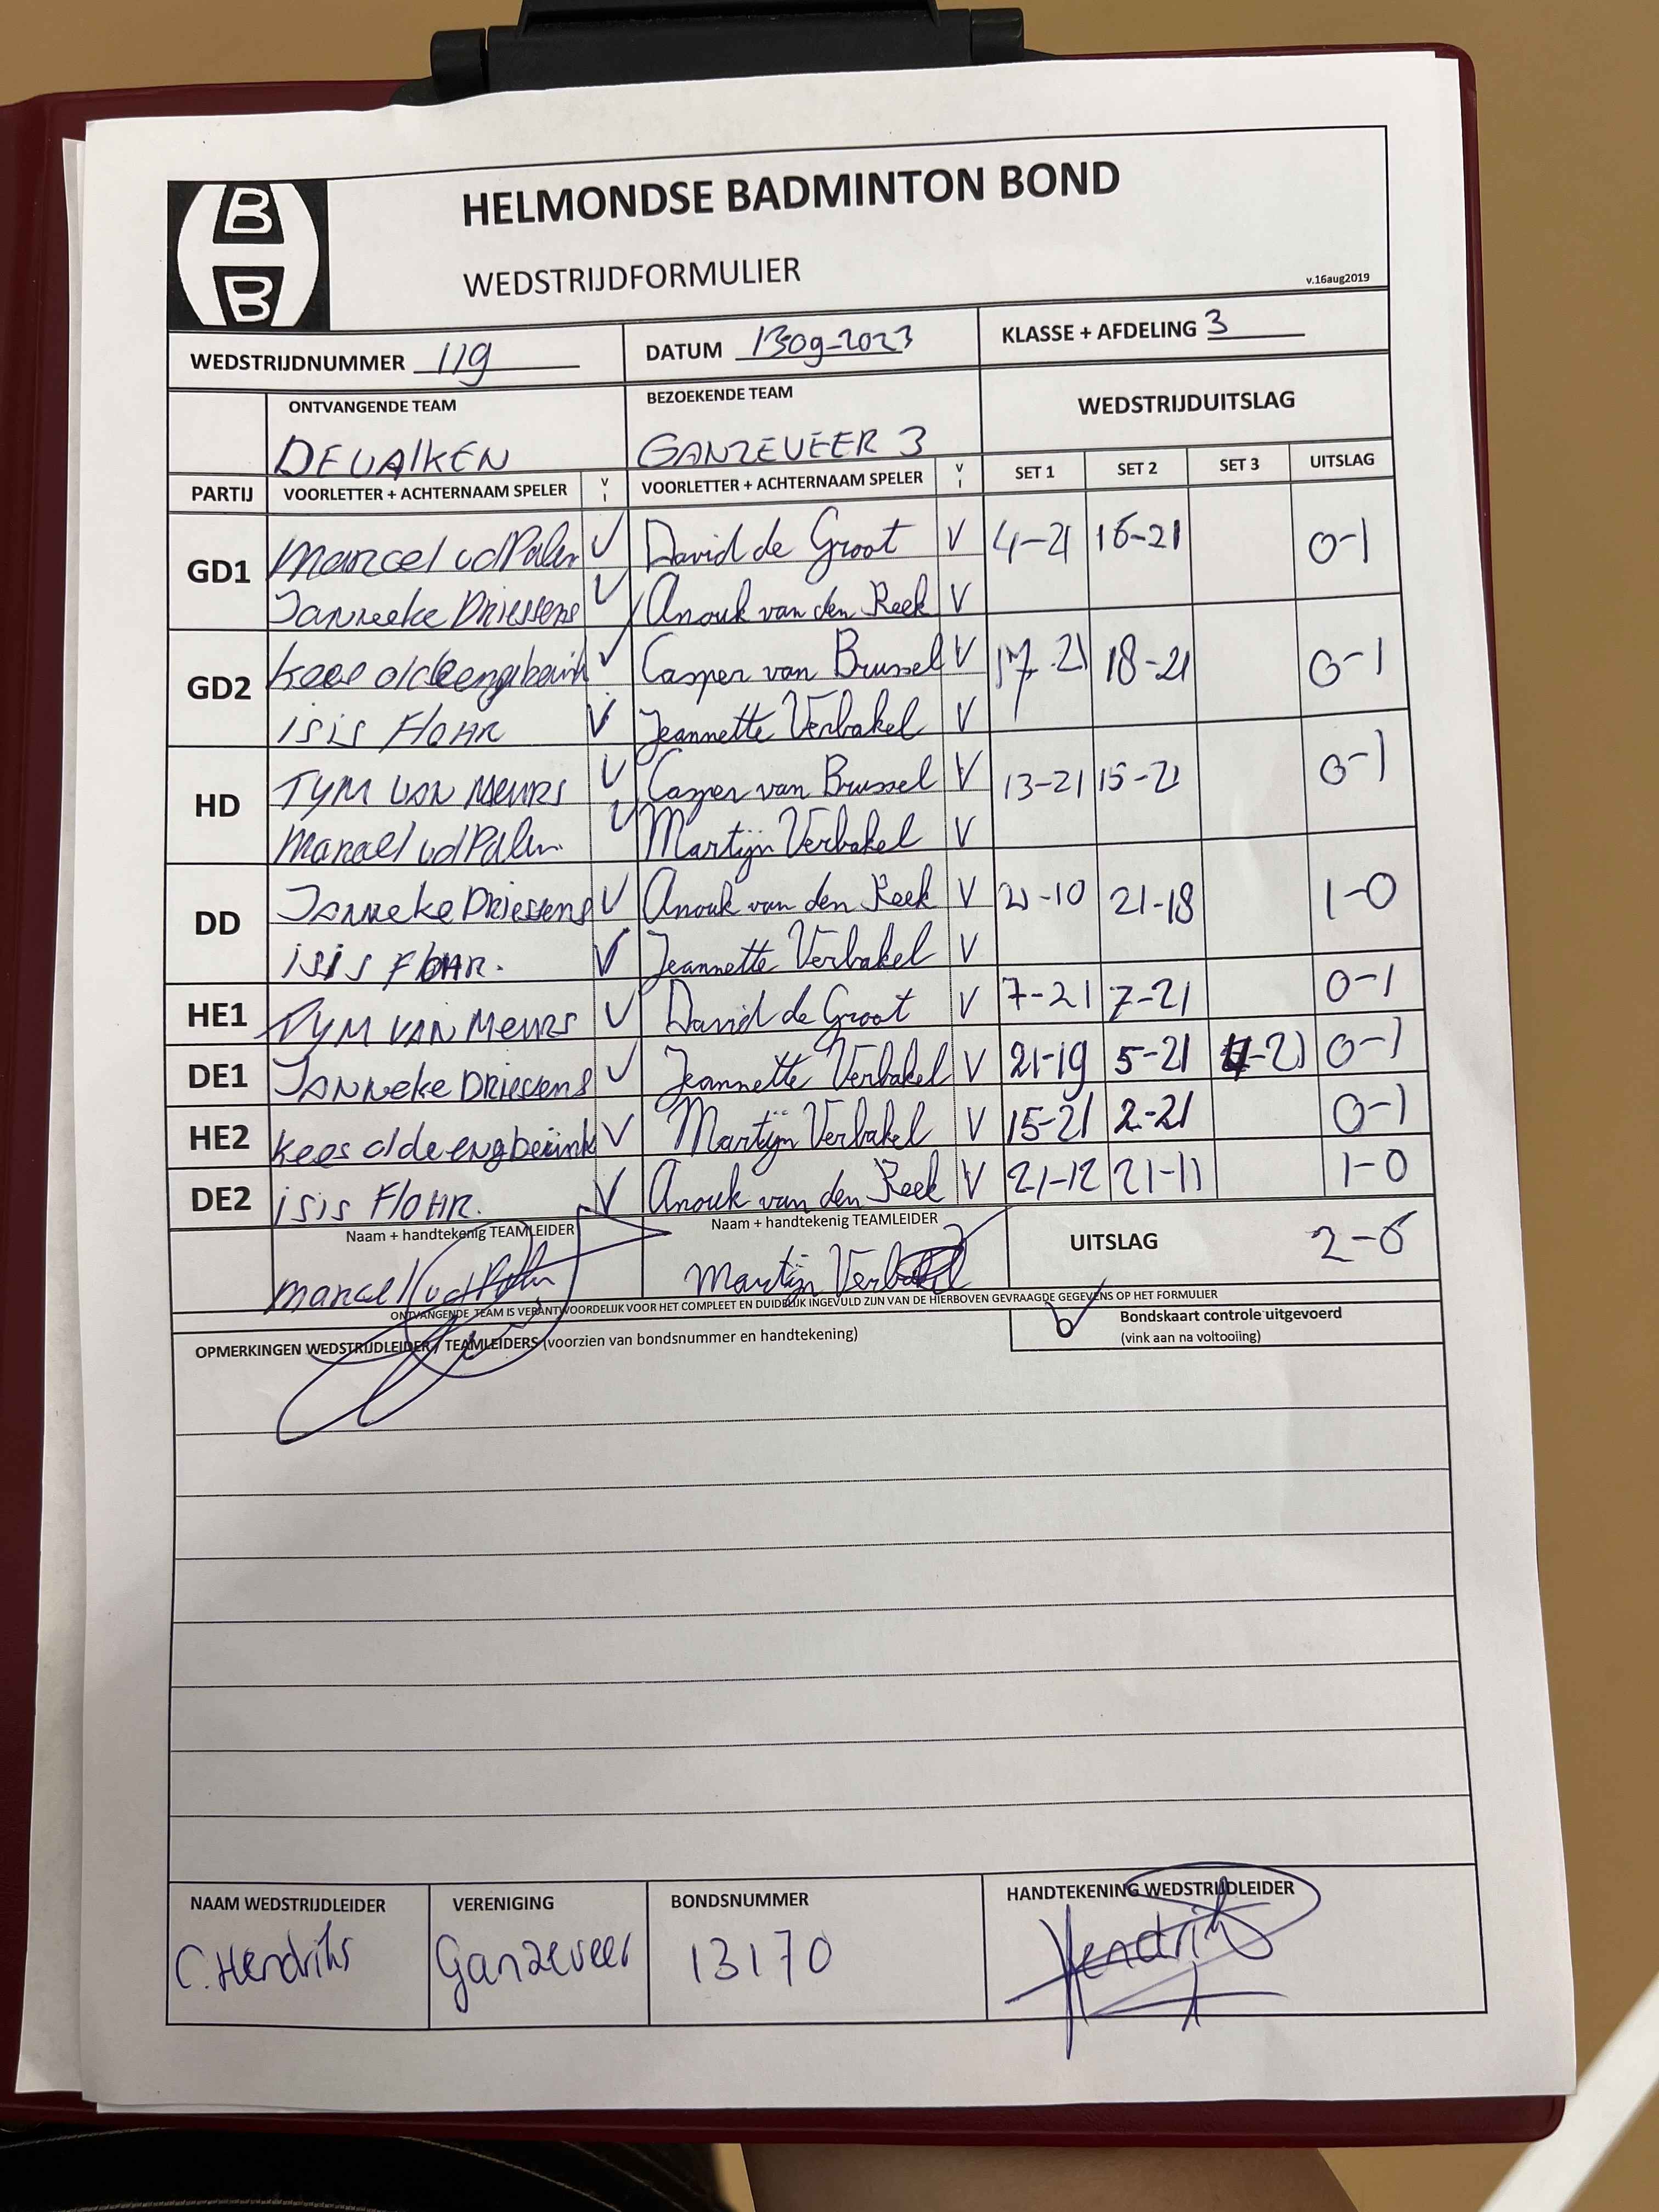 B
B
HELMONDSE BADMINTON BOND
WEDSTRIJDFORMULIER
v.16aug2019
WEDSTRIJDNUMMER 119 DATUM 1309-2023 KLASSE + AFDELING 3
ONTVANGENDE TEAM BEZOEKENDE TEAM WEDSTRIJDUITSLAG
DEVAlKEN GANZEVEER 3
PARTIJ VOORLETTER + ACHTERNAAM SPELER V I VOORLETTER + ACHTERNAAM SPELER V I SET 1 SET 2 SET 3 UITSLAG
GD1 Marcel vd Palen V David de Groot V 4-21 16-21 0-1
Janneke Driessens V Anouk van den Reek V
GD2 Kees olde engberink V Casper van Brussel V 17-21 18-21 0-1
isis FloHR V Jeannette Verbakel V
HD TYM VAN MEURS V Casper van Brussel V 13-21 15-21 0-1
Marcel vd Palen. V Martijn Verbakel V
DD Janneke Driessens V Anouk van den Reek V 21-10 21-18 1-0
isis FloHR. V Jeannette Verbakel V
HE1 TYM VAN MEURS V David de Groot V 7-21 7-21 0-1
DE1 JANNeke DRiesens V Jeannette Verbakel V 21-19 5-21 -21 0-1
HE2 Kees olde engberink V Martijn Verbakel V 15-21 2-21 0-1
DE2 isis FloHR. V Anouk van den Reek V 21-12 21-11 1-0
Naam + handtekenig TEAMLEIDER Naam + handtekenig TEAMLEIDER UITSLAG 2-6
Marcel vd Palen Martijn Verbakel
ONTVANGENDE TEAM IS VERANTWOORDELIJK VOOR HET COMPLEET EN DUIDELIJK INGEVULD ZIJN VAN DE HIERBOVEN GEVRAAGDE GEGEVENS OP HET FORMULIER
OPMERKINGEN WEDSTRIJDLEIDER / TEAMLEIDERS (voorzien van bondsnummer en handtekening) V Bondskaart controle uitgevoerd
(vink aan na voltooiing)
NAAM WEDSTRIJDLEIDER VERENIGING BONDSNUMMER HANDTEKENING WEDSTRIJDLEIDER
C. Hendriks Ganzeveer 13170 Hendriks